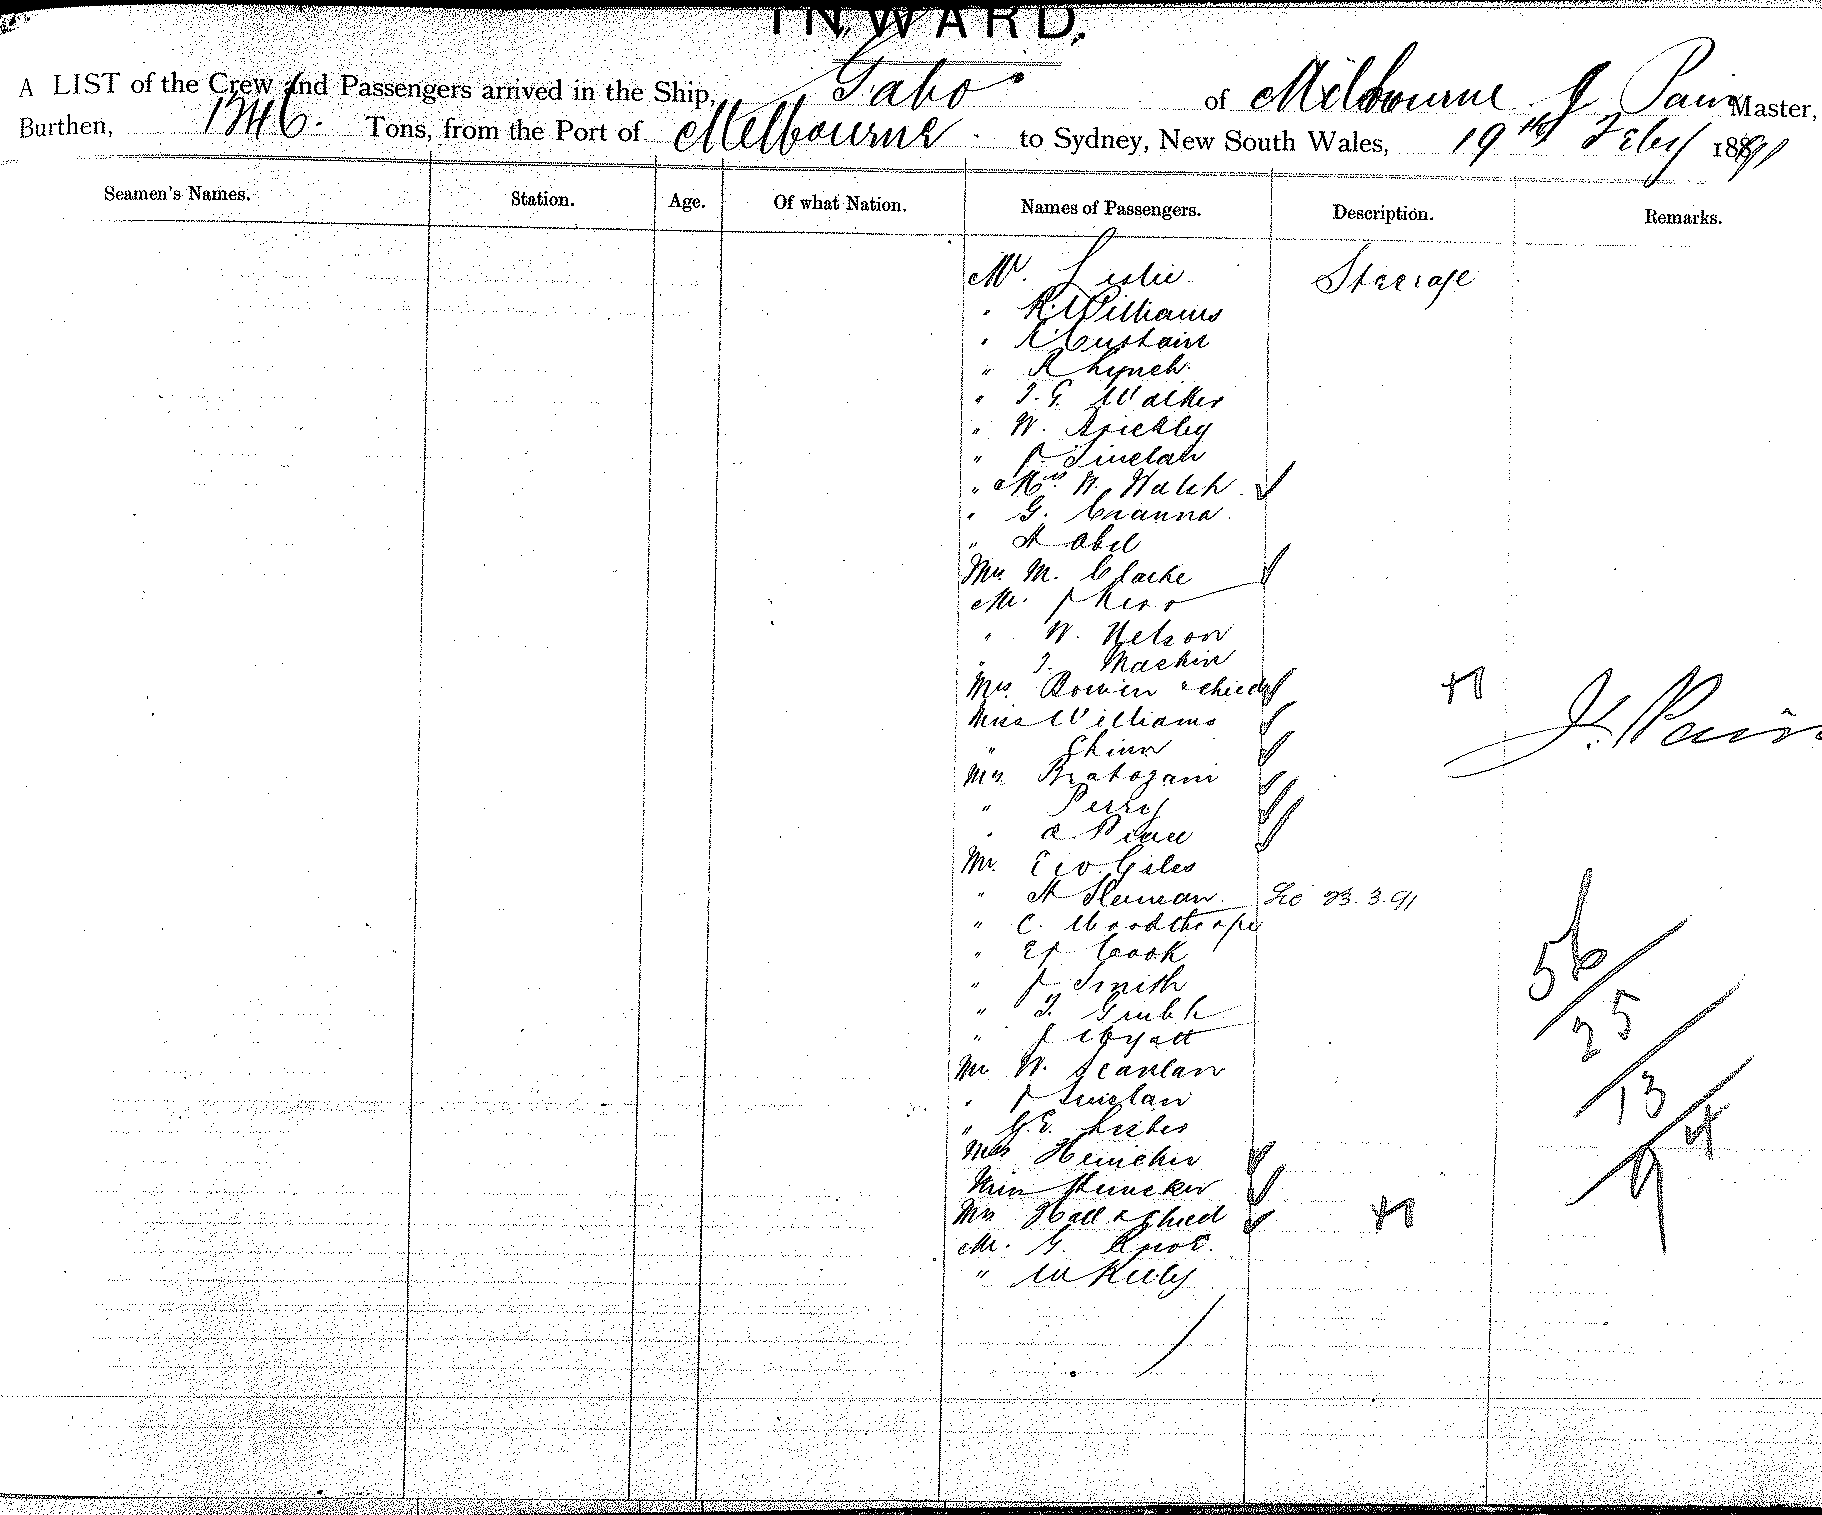 INWARD.
A LIST of the Crew and Passengers arrived in the Ship, Gabo of Melbourne J Pain Master,
Burthen, Tons, from the Port of Melbourne to Sydney, New South Wales, 19th Feby 1891
Seamen's Names. Station. Age. Of what Nation. Names of Passengers. Description. Remarks.
Mr. Leslie Steerage
" R. Williams
"
" R Lynch
" T. G. Walker
" W. Brickley
" J Sinclair
" Mrs W. Walsh
" G.
" A Abel
Mrs M. Clarke
Mr. J Kerr
" W. Nelson
" T. Machin
Mrs. Bowen & child +1
Miss Williams J. Pain
"
Mrs
" Perry
" a
Mr. Giles
" A Heiman Lic 23.3.91
" C. Woodthorpe
" E J Cook
" J Smith
" T. Grubb
" J Wyatt
Mr W. Scanlan
" J Quinlan
" G. E.
Mrs Heinecker
Miss Heinecker
Mrs Hall & child +1
Mr. G. Knot.
" W Kelly
56
25
13
4
9